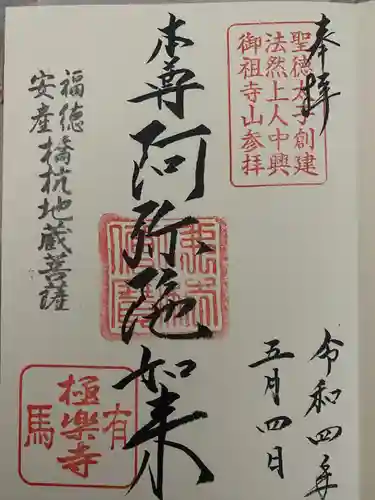 奉拝
聖徳太子創建
法然上人中興
御祖寺山参拝
令和四年
五月四日
本尊阿弥陀如来
福徳橋杭地蔵菩薩
安産
有
極楽寺
馬